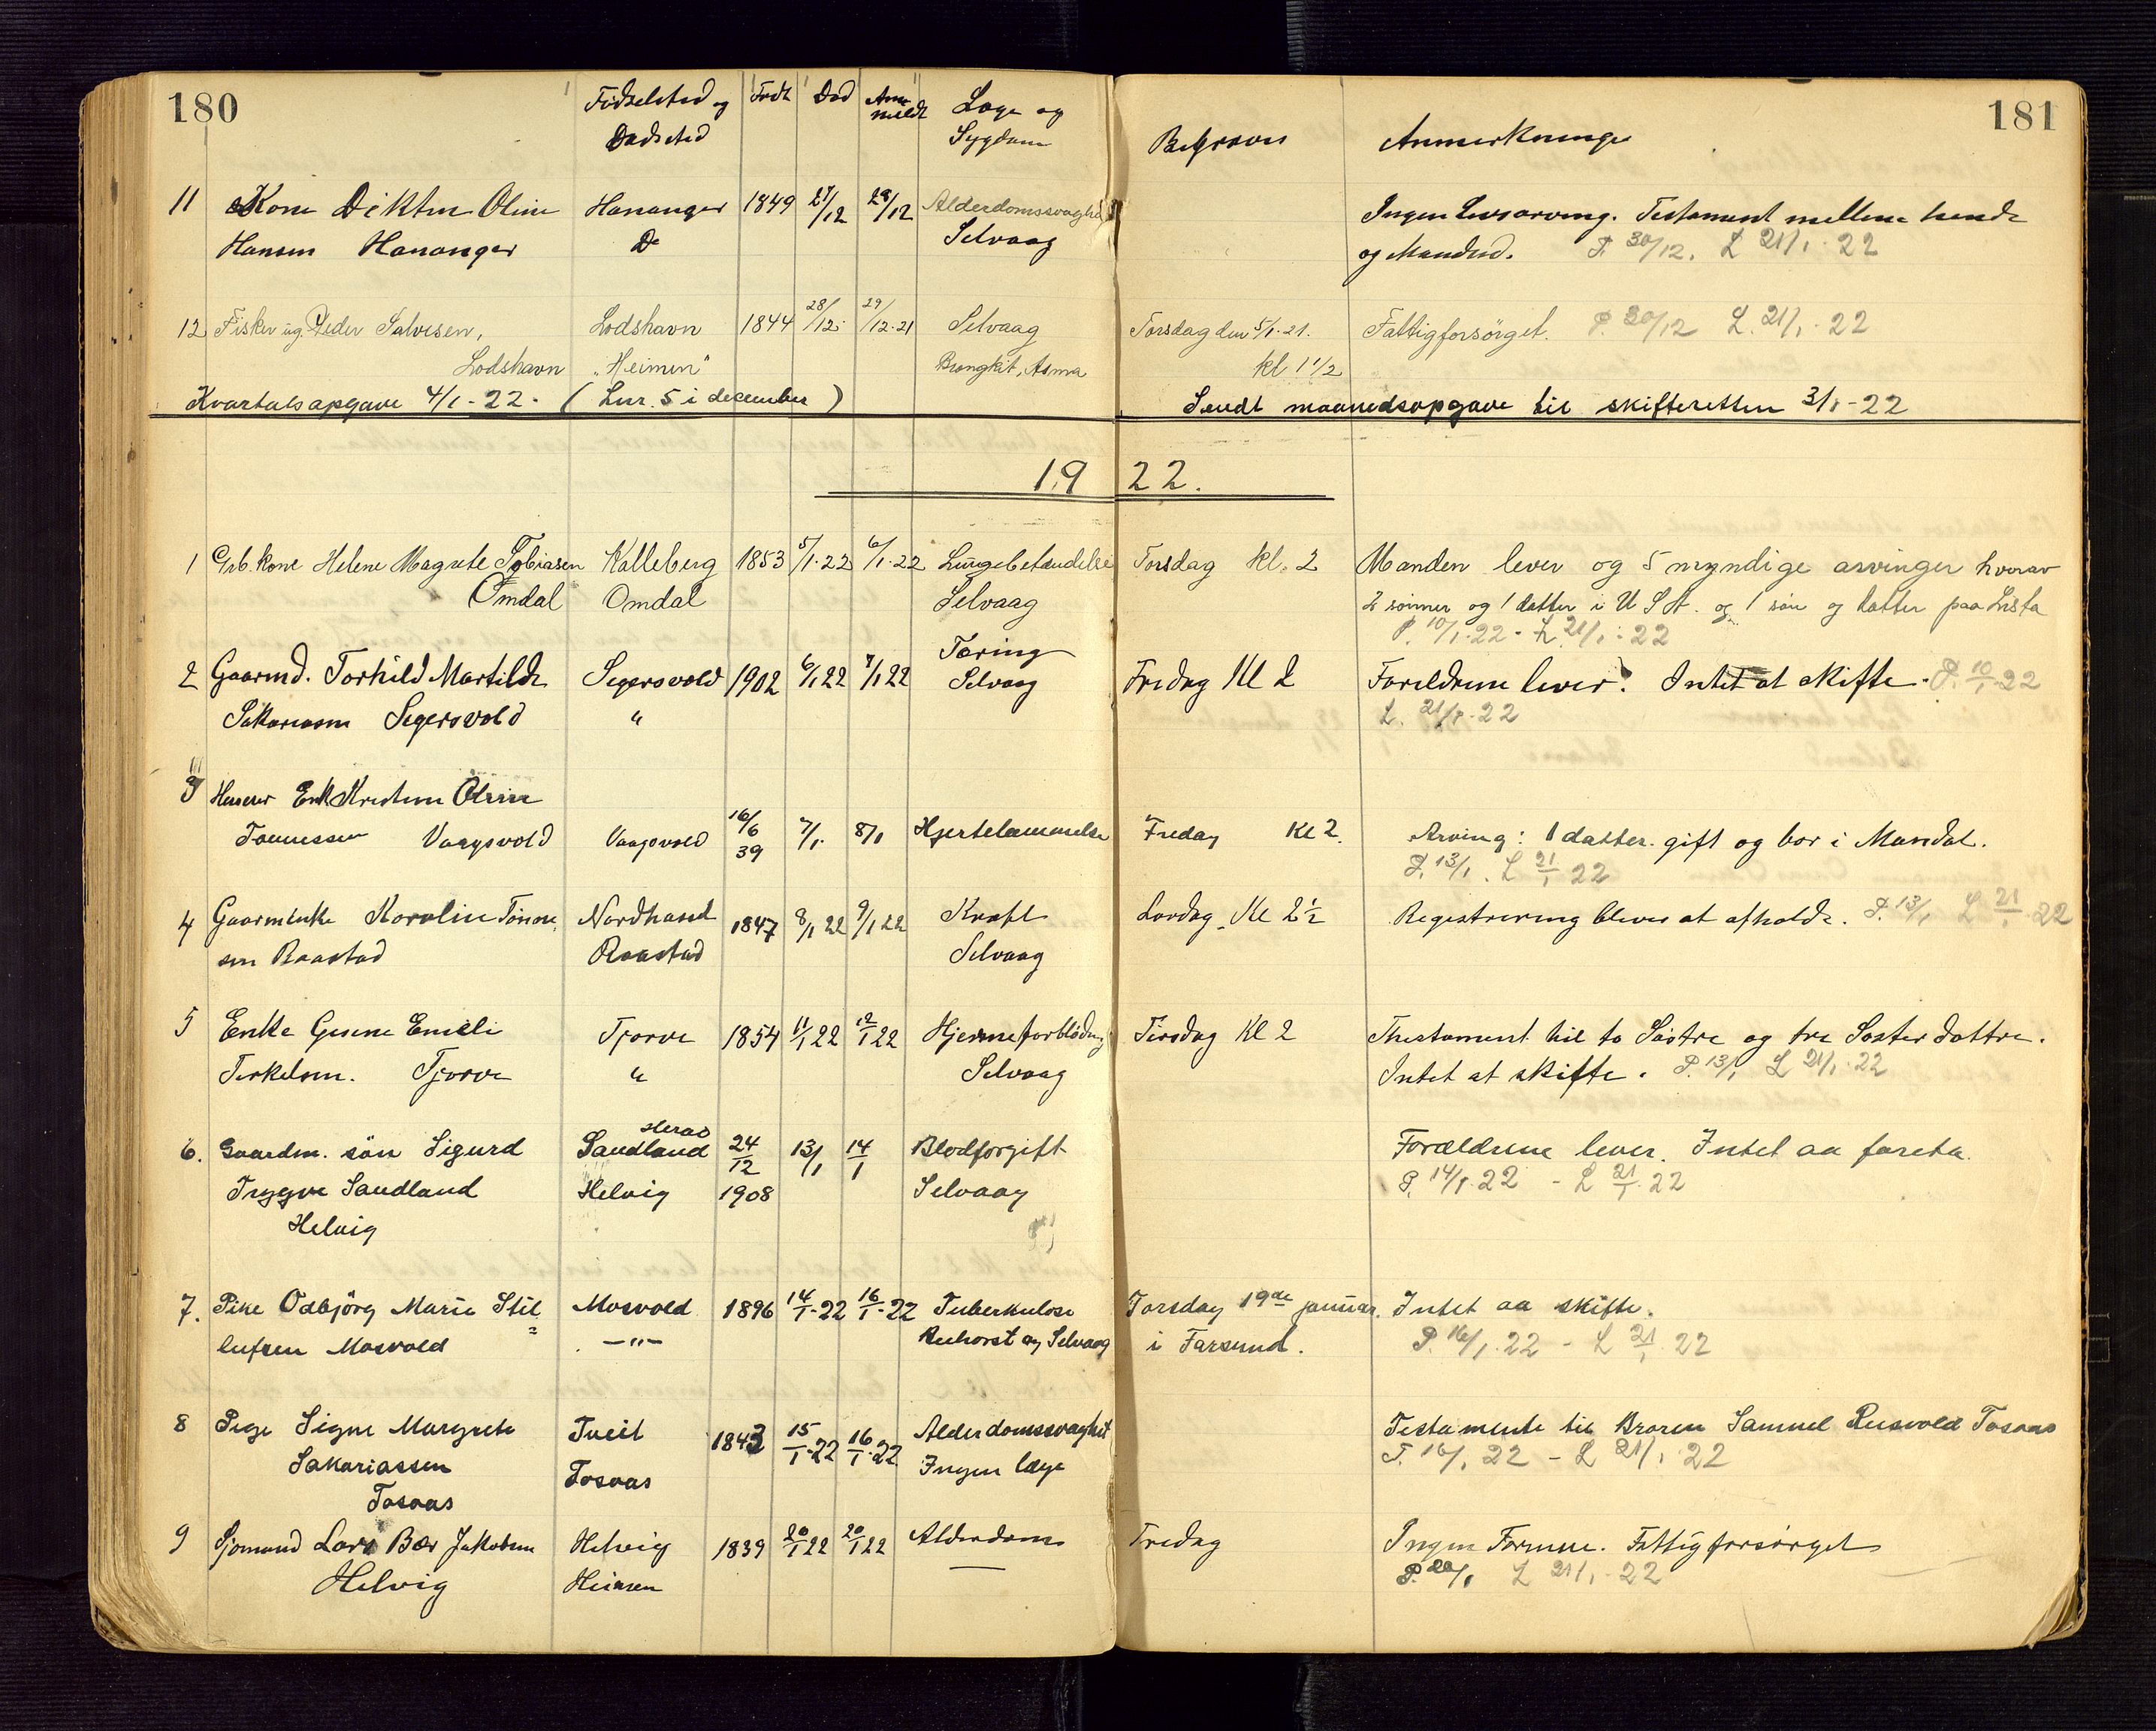 180
181
Fødselsted og Dødsted
Født
Død
Anmeldt
Læge og Sygdom
Begraves
Anmerkninger
11 Kone Oline Hananger 1849 27/12 29/12 Alderdomssvaghed Ingen Livsarving. Testament mellem hende
Hansen Hananger Do Selvaag og Manden. P. 30/12. L 21/1. 22
12 Fisker ug. Peder Salvesen, Lodshavn 1844 28/12 29/12-21 Selvaag Torsdag den 5/1-21. Fattigforsörget. P. 30/12 L. 21/1. 22
Lodshavn "Heimen" Bronkit, Asma kl 1 1/2
Kvartalsopgave 4/1-22. (Lnr. 5 i december) Sendt maanedsopgave til skifteretten 3/1-22
1922.
1 Arb. kone Helene Magrete Tobiasen Kalleberg 1853 5/1-22 6/1-22 Lungebetændelse Torsdag kl. 2 Manden lever og 5 myndige arvinger hvorav
Omdal Omdal Selvaag 2 sönner og 1 datter i U S A. og 1 sön og datter paa Lista
P. 10/1-22 - L 21/1-22
Tæring
2 Gaarmd. Torhild Martilde Segersvold 1902 6/1 22 7/1 22 Selvaag Fredag Kl 2 Foreldrene lever. Intet at skifte. P. 10/1 22
Sakariasen Segersvold " L. 21/1-22
3 Enk Kristine Olsine
Tönnessen Vaagsvold Vaagsvold 16/6 39 7/1. 8/1 Hjertelammelse Fredag Kl 2. Arving: 1 datter gift og bor i Mandal.
P. 13/1. L 21/1 22
4 Gaarmenke Karoline Tönne- Nordhassel 1847 8/1 22 9/1 22 Kræft Lordag Kl 2 1/2 Registrering blever at afholde. P. 13/1 L 21/1. 22
sen Raastad Raastad Selvaag
5 Enke Gesine Emeli Tjorve 1854 11/1 22 12/1 22 Hjerneforblödning Tirsdag Kl 2 Thestament til to Söstre og tre Soster dottre.
Terkelsen. Tjorve " Selvaag Intet at skifte. P. 13/1 L 21/1. 22
Herad
6. Gaardm. sön Sigurd Sandland 24/12 13/1 14/1 Blodforgift Forældrene lever. Intet aa foreta.
Trygve Sandland Helvig 1908 Selvaag P. 14/1. 22 - L 21/1. 22
Helvig
7. Pike Odbjörg Marie Stil= Mosvold 1896 14/1-22 16/1-22 Tuberkulose Torsdag 19de januar. Intet aa skifte.
lufsen Mosvold -"- og Selvaag i Farsund. P. 16/1. 22 - L 21/1. 22
8 Pige Signe Margrete Tveit 1843 15/1-22 16/1-22 Alderdomssvaghet Testamente til Broren Samuel Tosaas
Sakariassen Tosaas Ingen læge P. 16/1. 22 - L 21/1. 22
Tosaas
9 Sjomand Lars Bær Jakobsen Helvig 1839 20/1 22 20/1 22 Alderdom Fredag Ingen Formue. Fattigforsörget
Helvig Heimen P. 20/1 L 21/1. 22